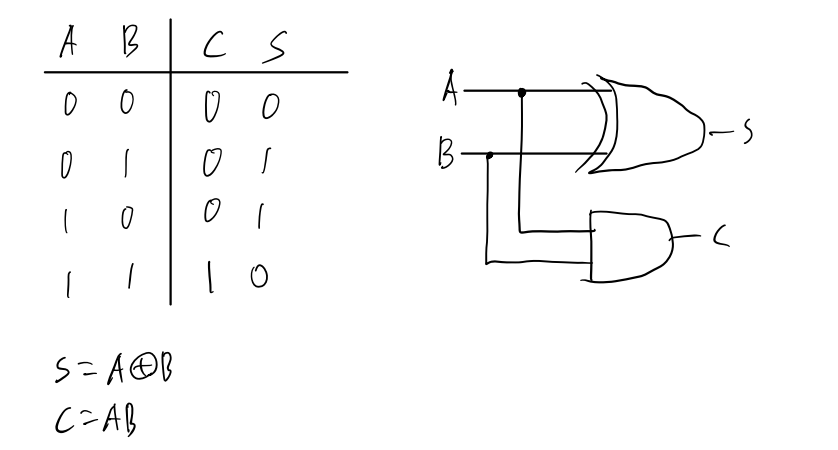 A B C S
0 0 0 0
0 1 0 1
1 0 0 1
1 1 1 0
S=A⊕B
C=AB
A
B
S
C